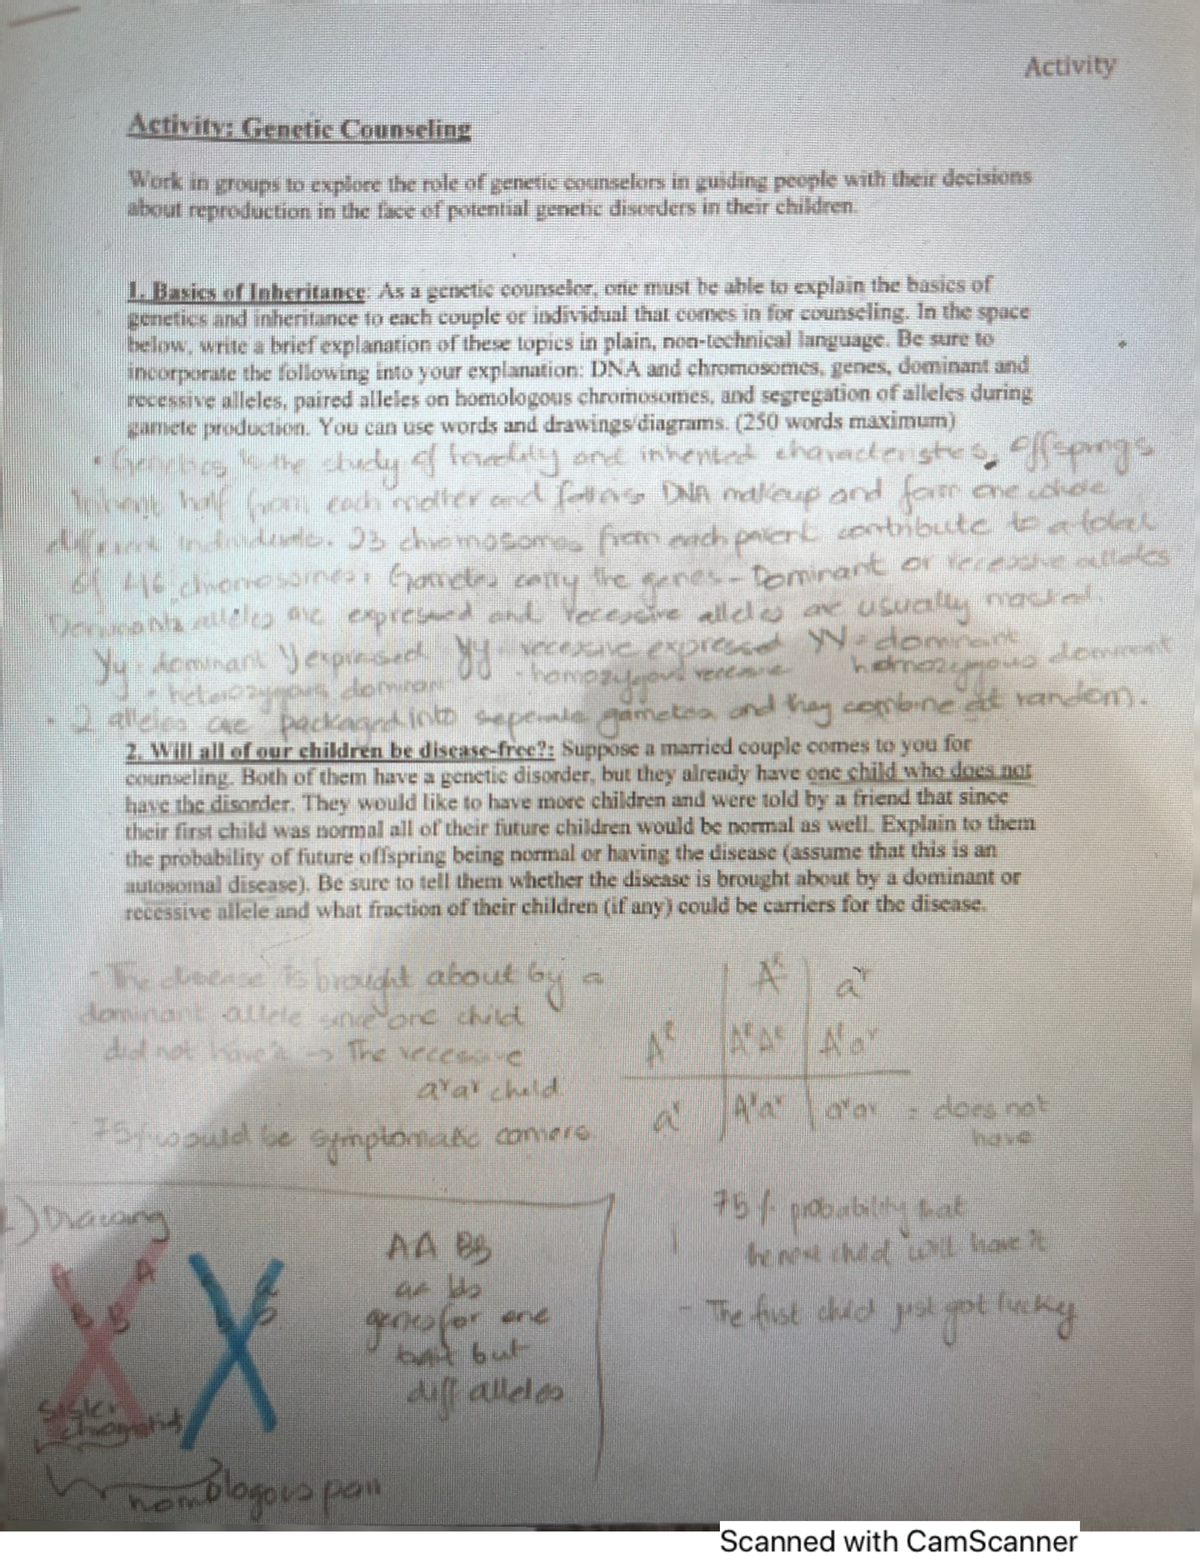 Activity
Activity: Genetic Counseling
Work in groups to explore the role of genetic counselors in guiding people with their decisions
about reproduction in the face of potential genetic disorders in their children.
1. Basics of Inheritance: As a genetic counselor, one must be able to explain the basics of
genetics and inheritance to each couple or individual that comes in for counseling. In the space
below, write a brief explanation of these topics in plain, non-technical language. Be sure to
incorporate the following into your explanation: DNA and chromosomes, genes, dominant and
recessive alleles, paired alleles on homologous chromosomes, and segregation of alleles during
gamete production. You can use words and drawings/diagrams. (250 words maximum)
• Genetics is the study of heredity and inherited characteristics, offsprings
inherit half from each mother and fathers DNA makeup and form one whole
different individuals. 23 chromosomes from each parent contribute to a total
of 46 chromosomes. Gametes carry the genes - Dominant or recessive alleles
Dominants alleles are expressed and recessive alleles are usually masked.
Yy - dominant Y expressed yy - recessive expressed YY - dominant
- heterozygous dominant - homozygous recessive homozygous dominant
- 2 alleles are packaged into seperate gametes and they combine at random.
2. Will all of our children be disease-free?: Suppose a married couple comes to you for
counseling. Both of them have a genetic disorder, but they already have one child who does not
have the disorder. They would like to have more children and were told by a friend that since
their first child was normal all of their future children would be normal as well. Explain to them
the probability of future offspring being normal or having the disease (assume that this is an
autosomal disease). Be sure to tell them whether the disease is brought about by a dominant or
recessive allele and what fraction of their children (if any) could be carriers for the disease.
- The disease is brought about by a
dominant allele since one child
did not have it → The recessive
arar child.
- 75% would be symptomatic carriers.
a^r
A^r a^r a^r a^r = does not
have
75% probability that
the next child will have it
- The first child just got lucky
Drawing
A A
B B
AA BB
aa bb
genes for one
trait but
diff alleles
sister
chromatids
homologous pair
Scanned with CamScanner